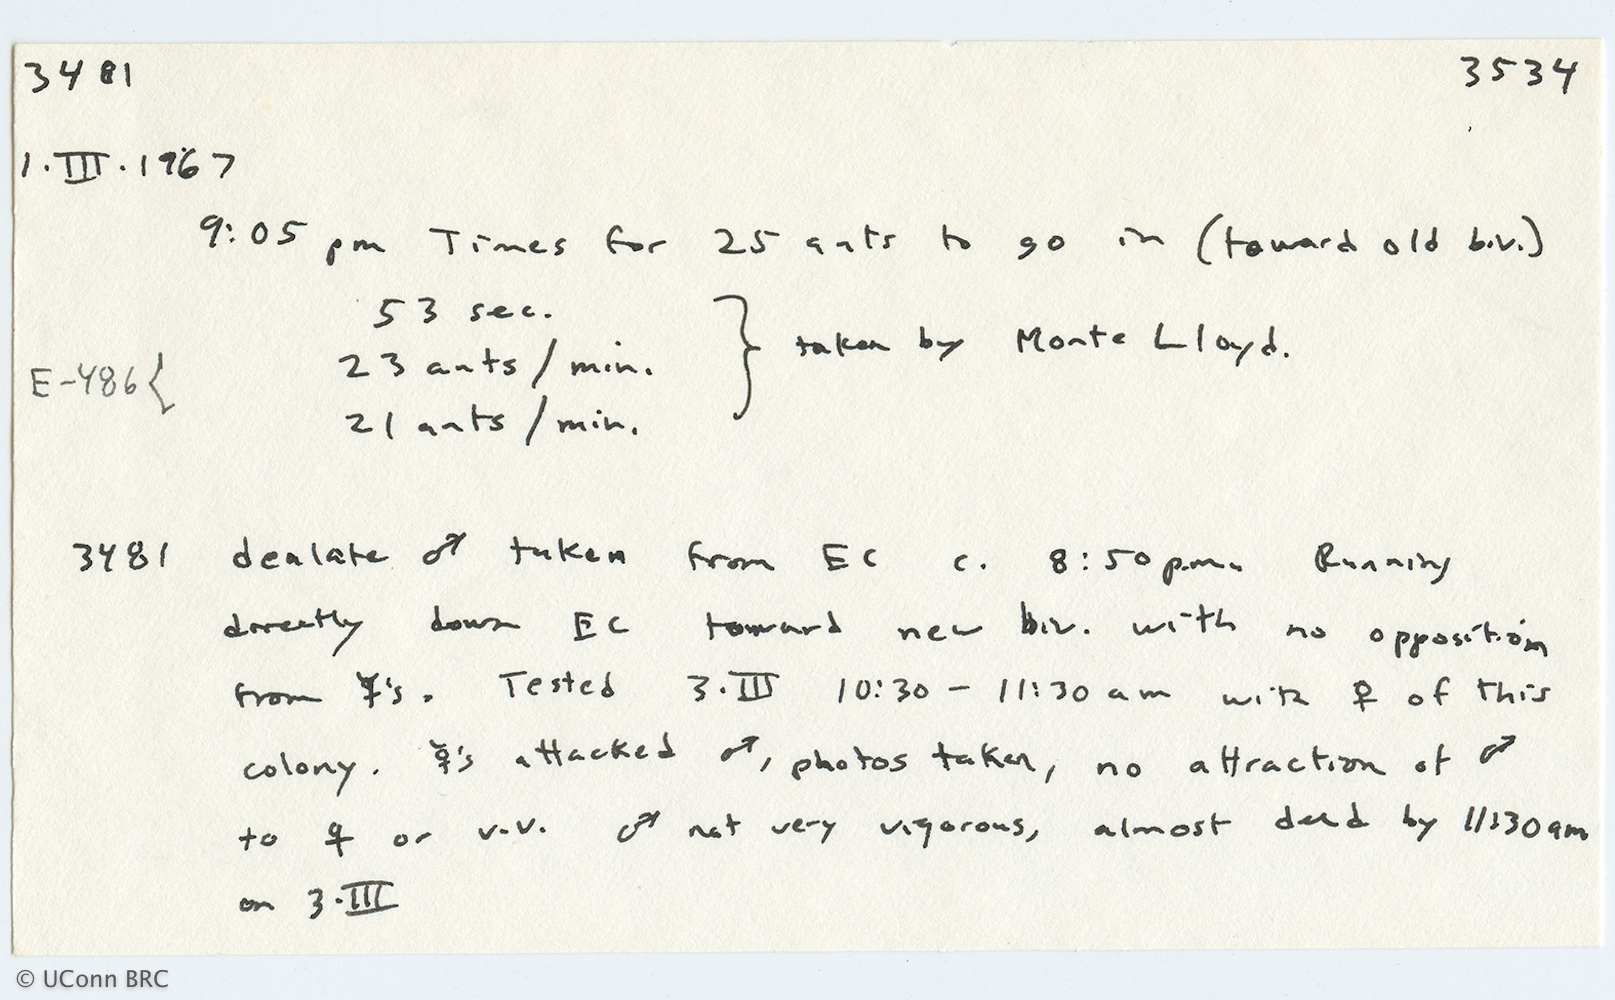 3481 3534
1.III.1967
9:05 pm Times for 25 ants to go in (toward old biv.)
53 sec.
23 ants/min. } taken by Monte Lloyd.
E-486{
21 ants/min.
3481 dealate ♂ taken from EC c. 8:50 p.m. Running
directly down EC toward new biv. with no opposition
from ☿'s. Tested 3.III 10:30 - 11:30 am with ♀ of this
colony. ☿'s attacked ♂, photos taken, no attraction of ♂
to ♀ or v.v. ♂ not very vigorous, almost dead by 11:30 am
on 3.III
© UConn BRC